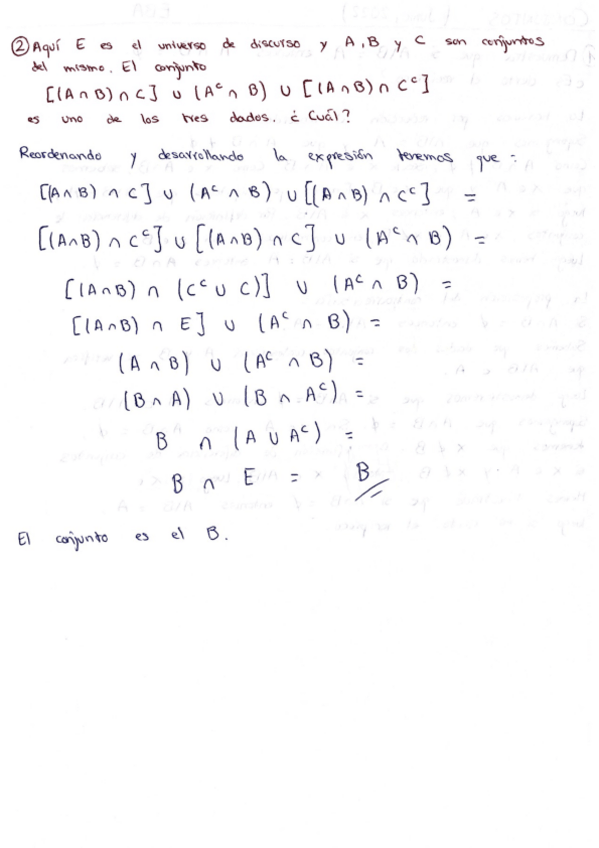 ② Aquí E es el universo de discurso y A, B y C son conjuntos
del mismo. El conjunto
[(A ∩ B) ∩ C] ∪ (Aᶜ ∩ B) ∪ [(A ∩ B) ∩ Cᶜ]
es uno de los tres dados. ¿Cuál?
Reordenando y desarrollando la expresión tenemos que:
[(A ∩ B) ∩ C] ∪ (Aᶜ ∩ B) ∪ [(A ∩ B) ∩ Cᶜ] =
[(A ∩ B) ∩ Cᶜ] ∪ [(A ∩ B) ∩ C] ∪ (Aᶜ ∩ B) =
[(A ∩ B) ∩ (Cᶜ ∪ C)] ∪ (Aᶜ ∩ B) =
[(A ∩ B) ∩ E] ∪ (Aᶜ ∩ B) =
(A ∩ B) ∪ (Aᶜ ∩ B) =
(B ∩ A) ∪ (B ∩ Aᶜ) =
B ∩ (A ∪ Aᶜ) =
B ∩ E = B
El conjunto es el B.